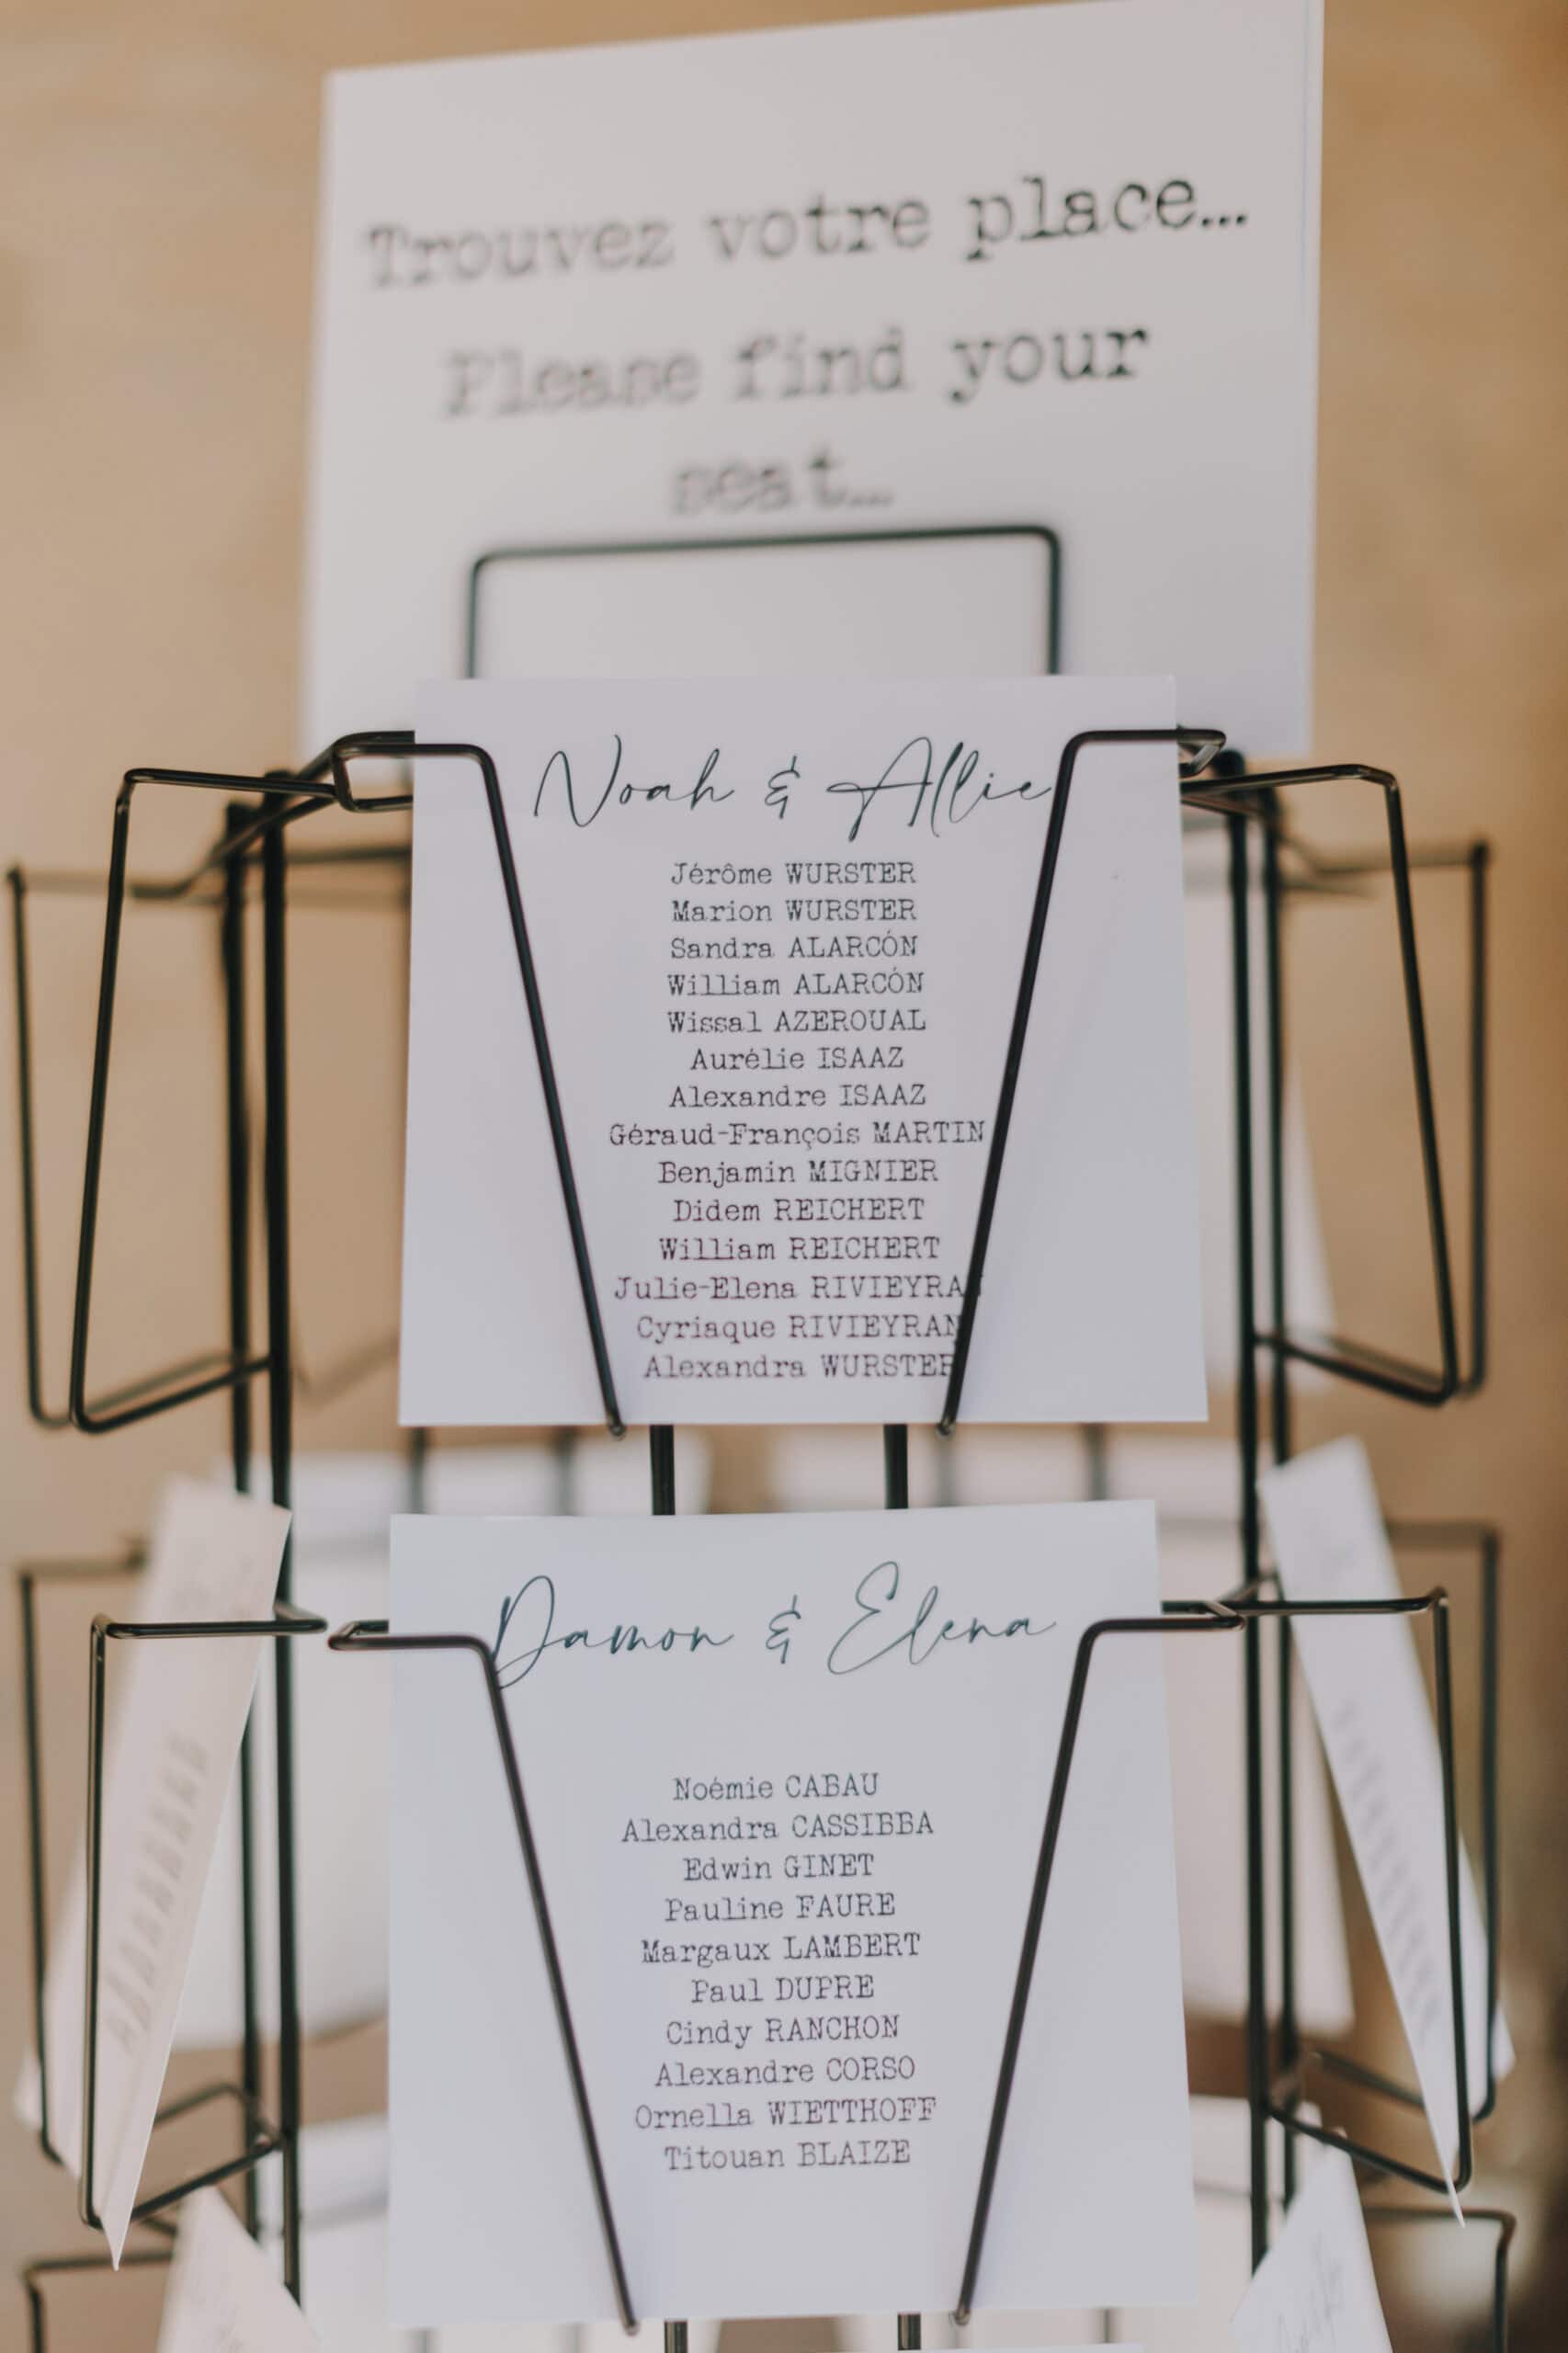 Trouvez votre place...
Please find your
seat...
Noah & Allie
Jérôme WURSTER
Marion WURSTER
Sandra ALARCÓN
William ALARCÓN
Wissal AZEROUAL
Aurélie ISAAZ
Alexandre ISAAZ
Géraud-François MARTIN
Benjamin MIGNIER
Didem REICHERT
William REICHERT
Julie-Elena RIVIEYRAN
Cyriaque RIVIEYRAN
Alexandra WURSTER
Damon & Elena
Noémie CABAU
Alexandra CASSIBBA
Edwin GINET
Pauline FAURE
Margaux LAMBERT
Paul DUPRE
Cindy RANCHON
Alexandre CORSO
Ornella WIETTHOFF
Titouan BLAIZE